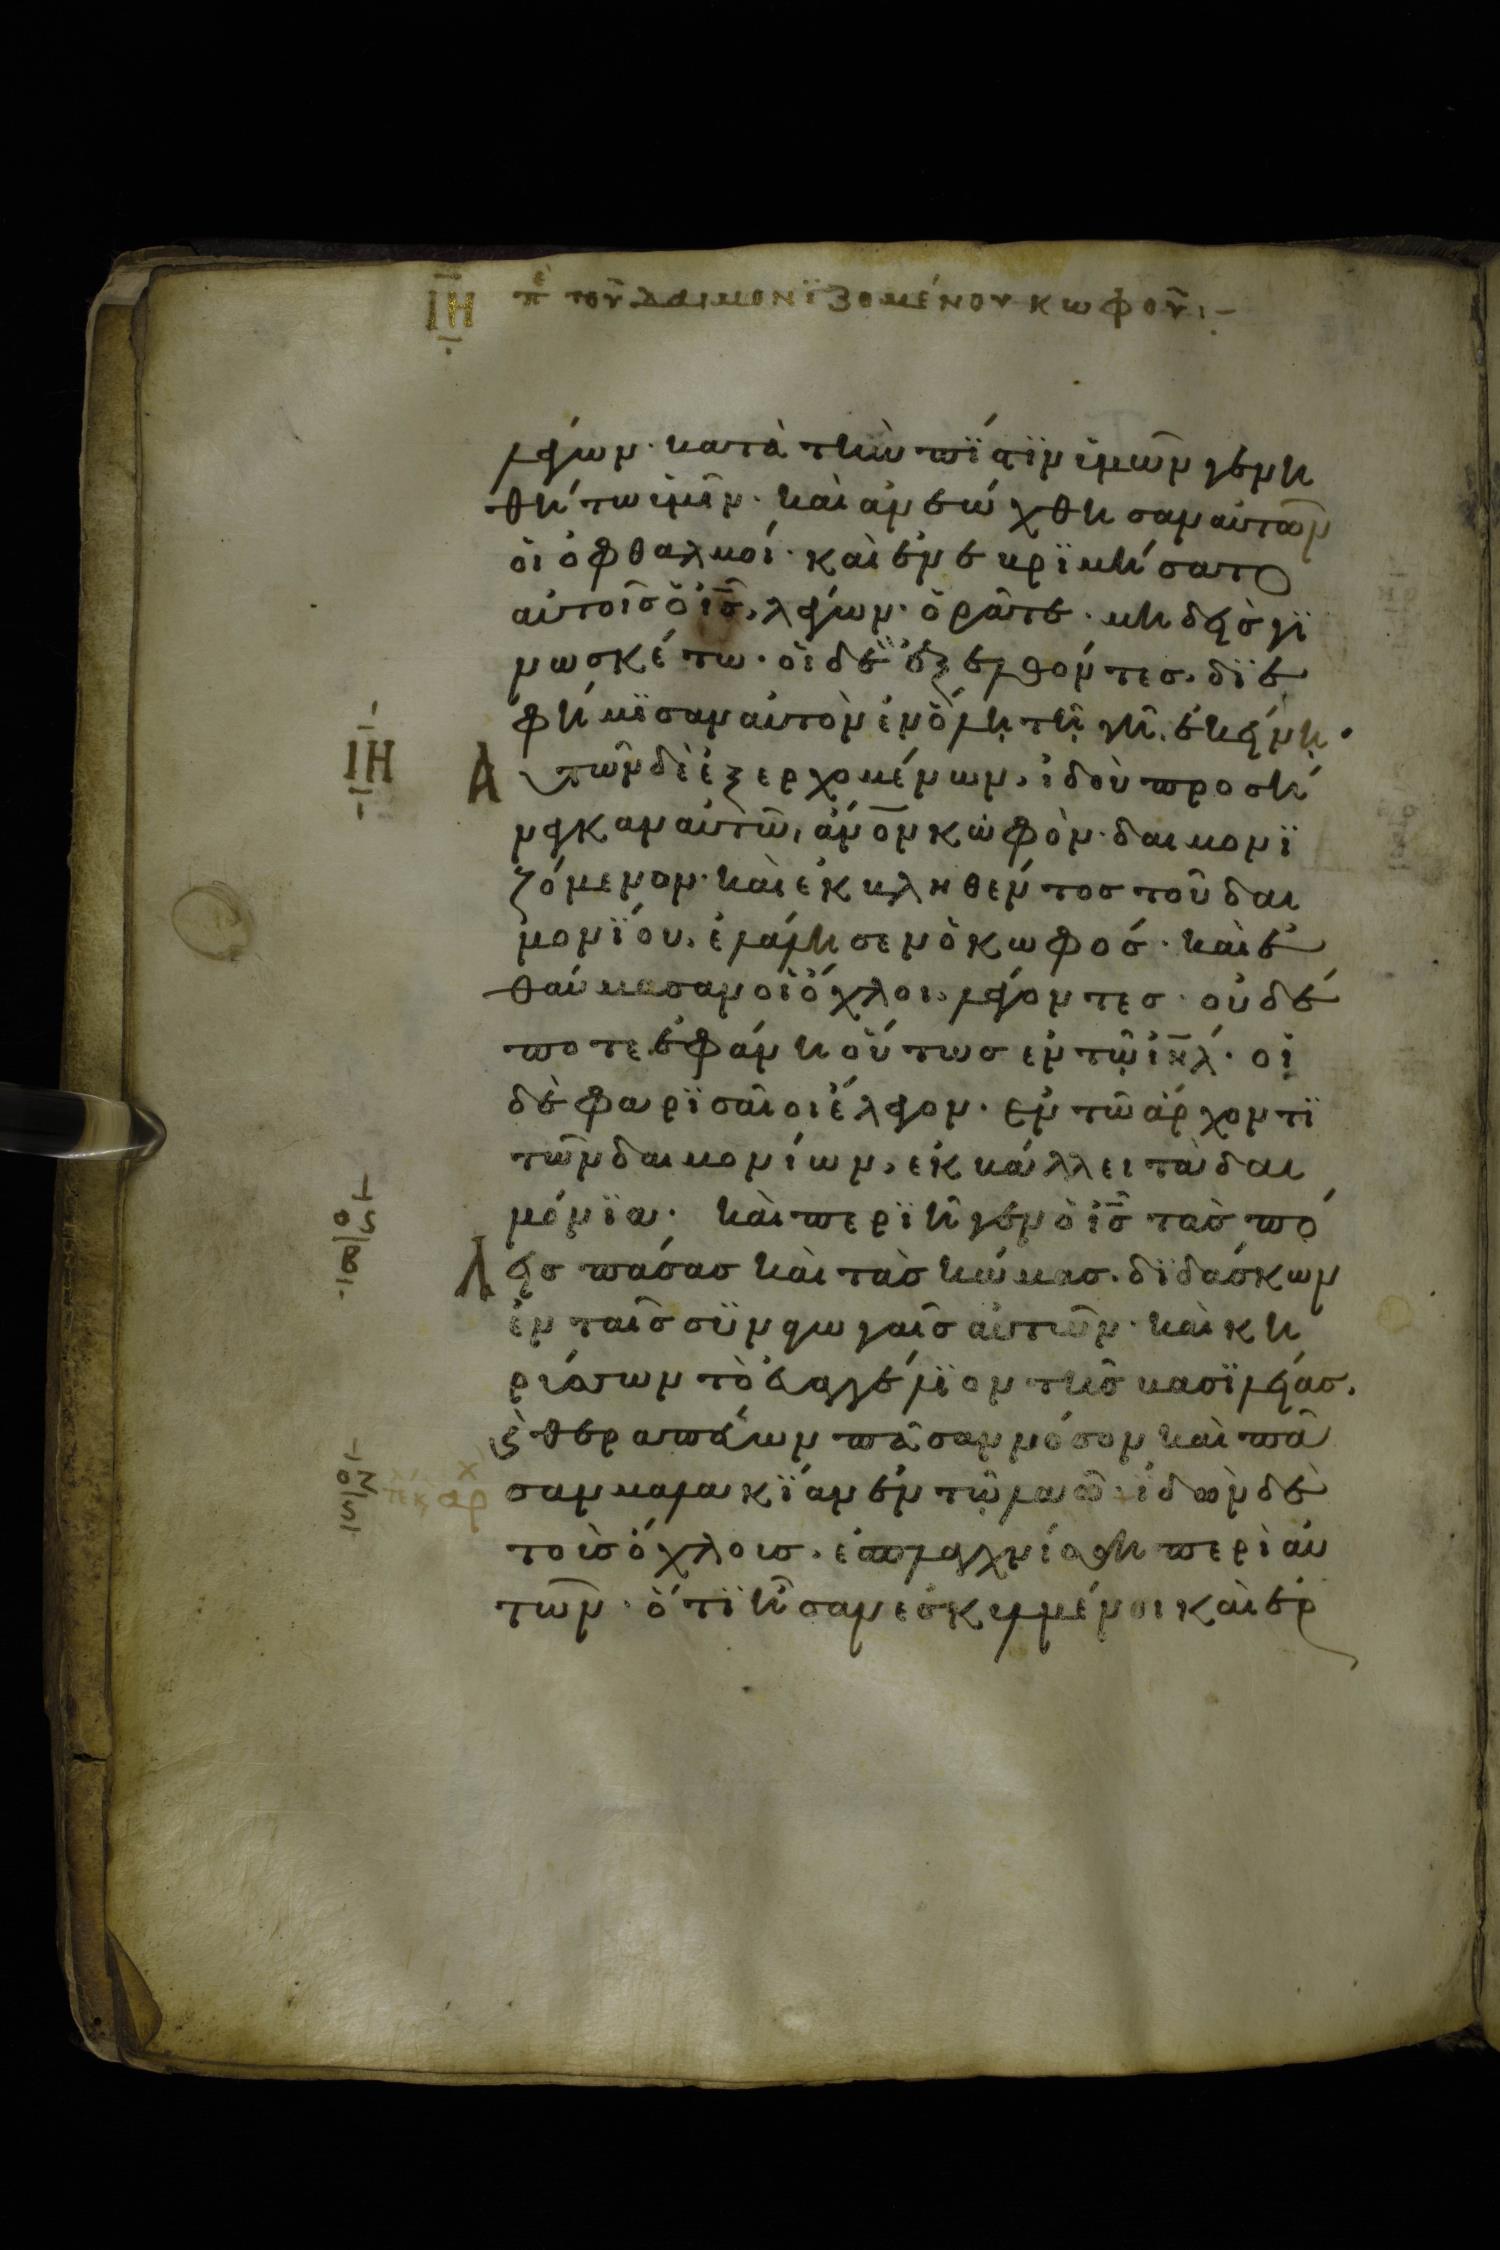 ΙΗ πε τοῦ δαιμονϊζομένου κωφοῦ:-
λέγων· κατὰ τὴν πίστϊν ὑμῶν γενη
θήτω ὑμῖν· καὶ ἀνεώχθησαν αὐτῶν
οἱ ὀφθαλμοί· καὶ ἐνεβρϊμήσατο
αὐτοῖς ὁ ις, λέγων· ὁρᾶτε· μηδεὶς γϊ
νωσκέτω· οἱ δὲ ἐξελθόντες, δϊε
φήμϊσαν αὐτὸν ἐν ὅλῃ τῇ γῇ ἐκείνῃ·
ΙΗ Αὐτῶν δὲ ἐξερχομένων, ἰδοὺ προσή
νεγκαν αὐτῶ, ἀνον κωφὸν· δαιμονϊ
ζόμενον· καὶ ἐκβληθέντος τοῦ δαι
μονϊου, ἐλάλησεν ὁ κωφός· καὶ ἐ
θαύμασαν οἱ ὄχλοι, λέγοντες· οὐδέ
ποτε ἐφάνη οὕτως ἐν τῷ ιηλ· οἱ
δὲ φαρϊσαῖοι ἔλεγον· ἐν τῶ ἄρχοντϊ
τῶν δαιμονίων, ἐκβάλλει τὰ δαι
μόνϊα· καὶ περϊῆγεν ὁ ις τὰς πό
Λεις πάσας καὶ τὰς κώμας, δϊδάσκων
ἐν ταῖς συναγωγαῖς αὐτῶν· καὶ κη
ρύσσων τὸ εὐαγγέλϊον τῆς βασϊλείας,
καὶ θεραπεύων πᾶσαν νόσον καὶ πᾶ
σαν μαλακϊαν ἐν τῷ λαῶ· ἰδὼν δὲ
τοὺς ὄχλους, ἐσπλαγχνίσθη περὶ αὐ
τῶν· ὅτϊ ἦσαν ἐσκυλμένοι καὶ ἐρ